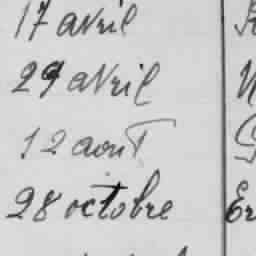 17 avril
29 avril
12 aout
28 octobre